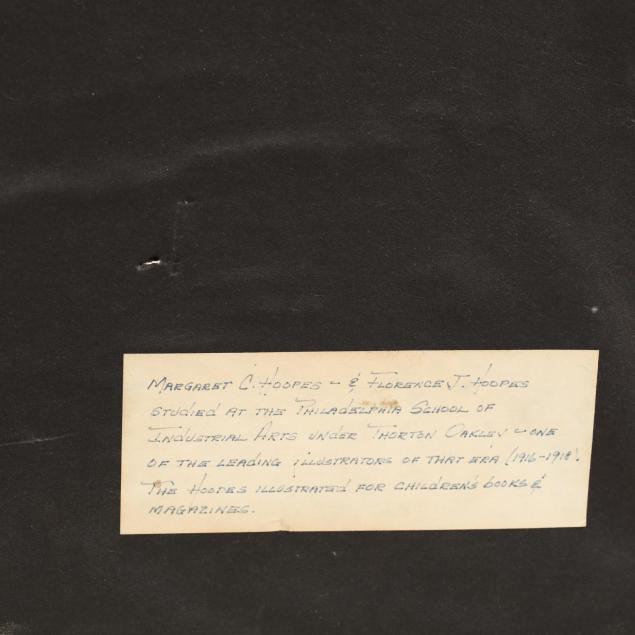 Margaret C. Hoopes - & Florence J. Hoopes
studied at the Philadelphia School of
Industrial Arts under Thorton Oakley - one
of the leading illustrators of that era (1916-1918).
The Hoopes illustrated for children's books &
magazines.